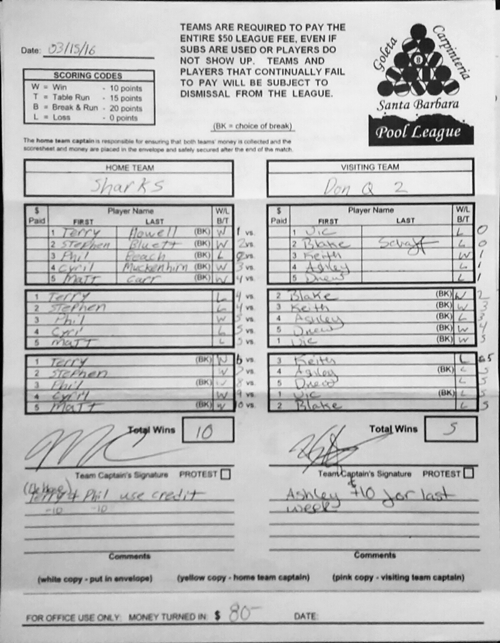 Date: 03/15/16
TEAMS ARE REQUIRED TO PAY THE
ENTIRE $50 LEAGUE FEE, EVEN IF
SUBS ARE USED OR PLAYERS DO
NOT SHOW UP. TEAMS AND
PLAYERS THAT CONTINUALLY FAIL
TO PAY WILL BE SUBJECT TO
DISMISSAL FROM THE LEAGUE.
(BK = choice of break)
SCORING CODES
W = Win - 10 points
T = Table Run - 15 points
B = Break & Run - 20 points
L = Loss - 0 points
Goleta
Carpinteria
Santa Barbara
Pool League
The home team captain is responsible for ensuring that both teams' money is collected and the
scoresheet and money are placed in the envelope and safely secured after the end of the match.
HOME TEAM
Sharks
VISITING TEAM
Don Q 2
$ Paid Player Name FIRST LAST W/L B/T
1 Terry Howell (BK) W 1 vs.
2 Stephen Bluett (BK) W 2 vs.
3 Phil Beach (BK) L 2 vs.
4 Cyril Muckenhirn (BK) W 3 vs.
5 Matt Carr (BK) W 4 vs.
$ Paid Player Name FIRST LAST W/L B/T
1 Vic L 0
2 Blake L 0
3 Keith W 1
4 Ashley L 1
5 Drew L 1
1 Terry L 4 vs.
2 Stephen L 4 vs.
3 Phil W 5 vs.
4 Cyril L 5 vs.
5 Matt L 5 vs.
2 Blake (BK) W 2
3 Keith (BK) W 3
4 Ashley (BK) L 3
5 Drew (BK) W 4
1 Vic (BK) W 5
1 Terry (BK) W 6 vs.
2 Stephen W 7 vs.
3 Phil (BK) W 8 vs.
4 Cyril W 9 vs.
5 Matt (BK) W 10 vs.
3 Keith L 5
4 Ashley (BK) L 5
5 Drew L 5
1 Vic (BK) L 5
2 Blake L 5
Total Wins 10
Total Wins 5
Team Captain's Signature PROTEST
Team Captain's Signature PROTEST
Terry & Phil use credit
-10 -10
Ashley +10 for last
week
Comments
Comments
(white copy - put in envelope) (yellow copy - home team captain) (pink copy - visiting team captain)
FOR OFFICE USE ONLY: MONEY TURNED IN: $ 80- DATE: